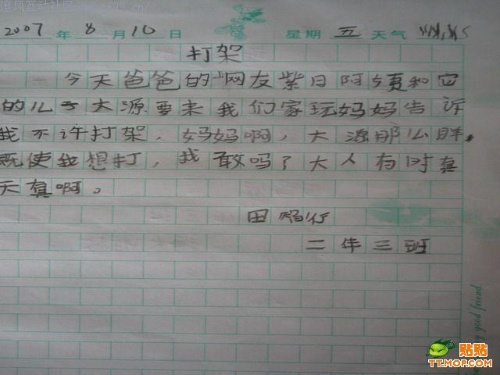 2007 年 8 月 10 日 星期 五 天气
打架
今天爸爸的"网友紫日阿姨和它
的儿子大源要来我们家玩妈妈告诉
我不许打架，妈妈啊，大源那么胖，
既使我想打，我敢吗？大人有时真
天真啊。
田
二年三班
good friend
贴贴
TT.MOP.COM